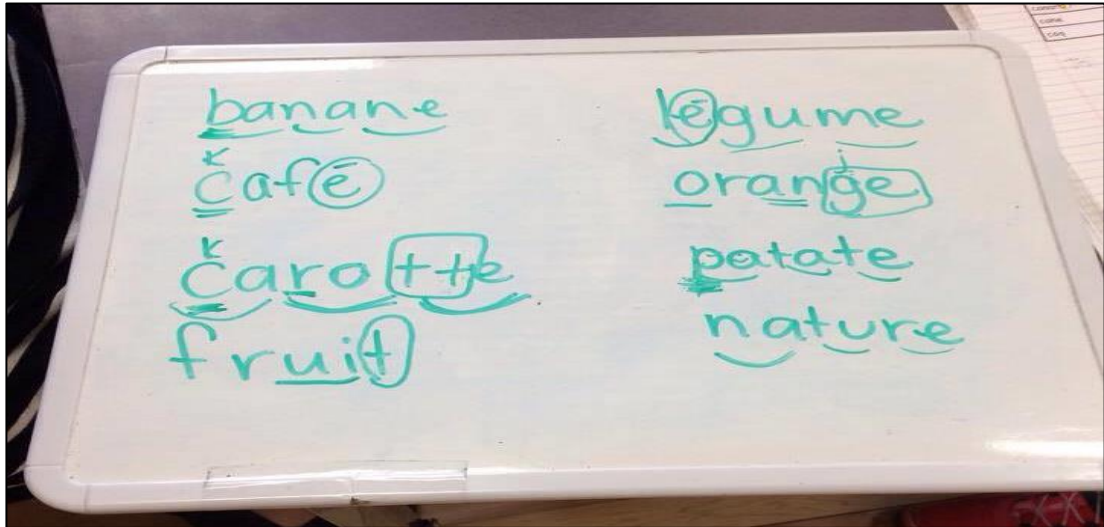 banane
k
café
k
carotte
fruit
légume
j
orange
patate
nature